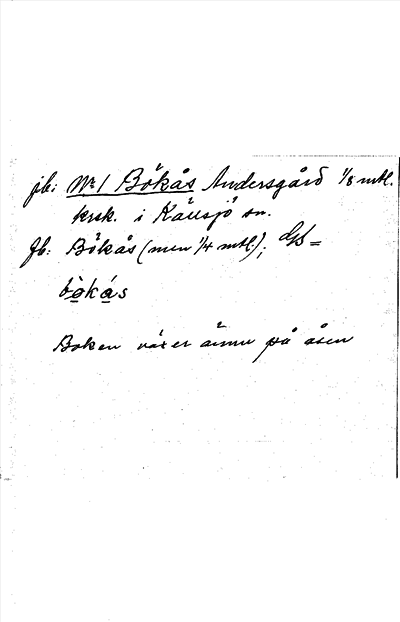 jb: No 1 Bökås Andersgård 1/8 mtl.
krsk. i Källsjö sn.
fb: Bökås (men 1/4 mtl.); GS =
bökås
Boken växer ännu på åsen